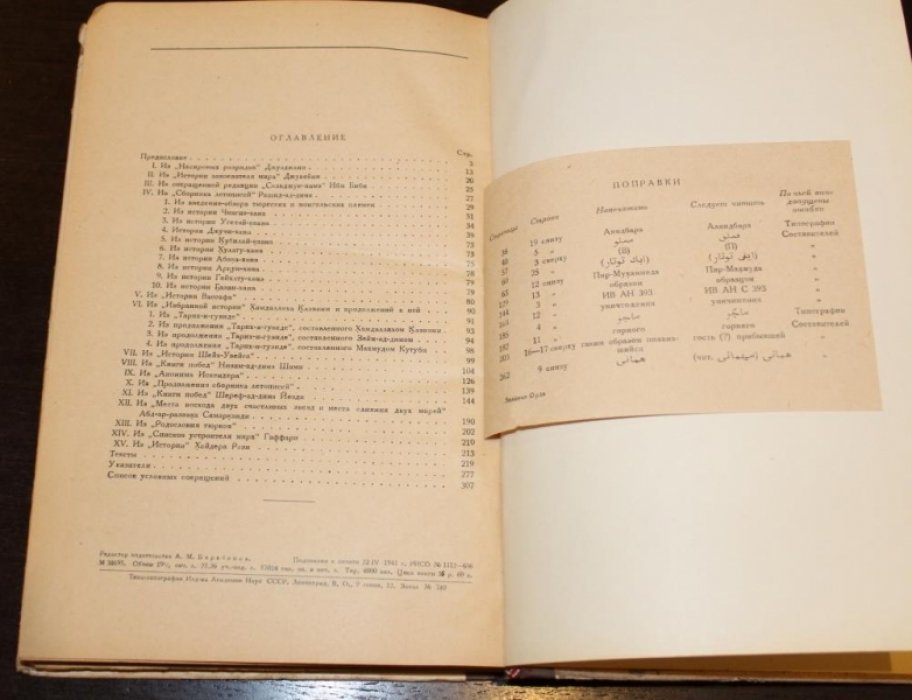 ОГЛАВЛЕНИЕ
Стр.
Предисловие 3
I. Из „Насировых разрядов“ Джузджани 13
II. Из „Истории завоевателя мира“ Джувейни 20
III. Из сокращенной редакции „Сельджук-намэ“ Ибн Биби 25
IV. Из „Сборника летописей“ Рашид-ад-дина 27
1. Из введения-обзора тюркских и монгольских племен 29
2. Из истории Чингиз-хана 31
3. Из истории Угетай-хана 34
4. Истории Джучи-хана 39
5. Из истории Кубилай-хана 73
6. Из истории Хулагу-хана 73
7. Из истории Абага-хана 75
8. Из истории Аргун-хана 78
9. Из истории Гейхату-хана 79
10. Из истории Газан-хана 79
V. Из „Истории Вассафа“ 80
VI. Из „Избранной истории“ Хамдаллаха Казвини и продолжений к ней 90
1. Из „Тарих-и-гузидэ“ 91
2. Из продолжения „Тарих-и-гузидэ“, составленного Хамдаллахом Казвини 93
3. Из продолжения „Тарих-и-гузидэ“, составленного Зейн-ад-дином 94
4. Из продолжения „Тарих-и-гузидэ“, составленного Махмудом Кутуби 98
VII. Из „Истории Шейх-Увейса“ 99
VIII. Из „Книги побед“ Низам-ад-дина Шами 104
IX. Из „Анонима Искендера“ 126
X. Из „Продолжения сборника летописей“ 139
XI. Из „Книги побед“ Шереф-ад-дина Йезди 144
XII. Из „Места восхода двух счастливых звезд и места слияния двух морей“
Абд-ар-раззака Самарканди 190
XIII. Из „Родословия тюрков“ 202
XIV. Из „Списков устроителя мира“ Гаффари 210
XV. Из „Истории“ Хайдера Рази 213
Тексты 219
Указатели 277
Список условных сокращений 307
Редактор издательства А. М.
Подписано к печати 22 IV 1941 г. РИСО №
Объем 19½ печ. л. уч.-изд. л. Тир. 4000 экз. Цена книги р. 60 к.
Типолитография Изд-ва Академии Наук СССР, Ленинград, В. О., 9 линия, 12. Заказ № 340
ПОПРАВКИ
Страница Строка Напечатано Следует читать По чьей вине допущены ошибки
38 19 снизу Аниджбара Алиджбара Типографии
Составителей
(II) (П) „
3 сверху „
25 „ Пир-Мухаммеда Пир-Махмуда „
12 снизу образом образцом „
13 „ ИВ АН 393 ИВ АН С 393 „
3 „ уничтожения уничтожив „
12 „ Типографии
4 „ горного горного Составителей
11 „
16—17 сверху таким образом гость (?) прибывший „
262 9 снизу (чит. „
Золотая Орда